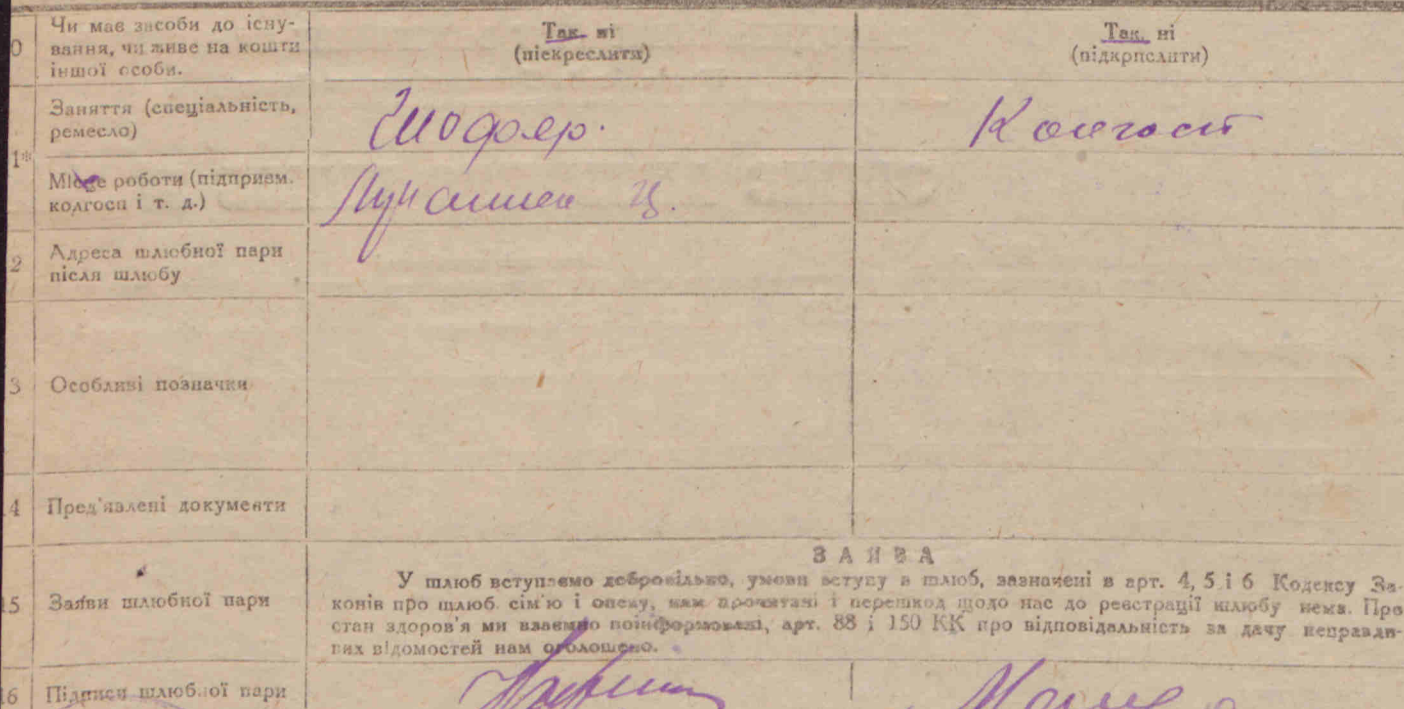 0 Чи має засоби до існу-
вання, чи живе на кошти
іншої особи.
Так. ні
(піскреслити)
Так. ні
(підкрпслити)
1* Заняття (спеціальність,
ремесло)
Шофер.
Колгосп
Місце роботи (підприєм.
колгосп і т. д.)
Ц.
2 Адреса шлюбної пари
після шлюбу
3 Особливі позначки
4 Пред'явлені документи
15 Заяви шлюбної пари
ЗАЯВА
У шлюб вступаємо добровільно, умови вступу в шлюб, зазначені в арт. 4, 5 і 6 Кодексу За-
конів про шлюб сім'ю і опеку, нам прочитані і перешкод щодо нас до реєстрації шлюбу нема. Про
стан здоров'я ми взаємно поінформовані, арт. 88 і 150 КК про відповідальність за дачу неправди-
вих відомостей нам оголошено.
16 Підписи шлюбної пари